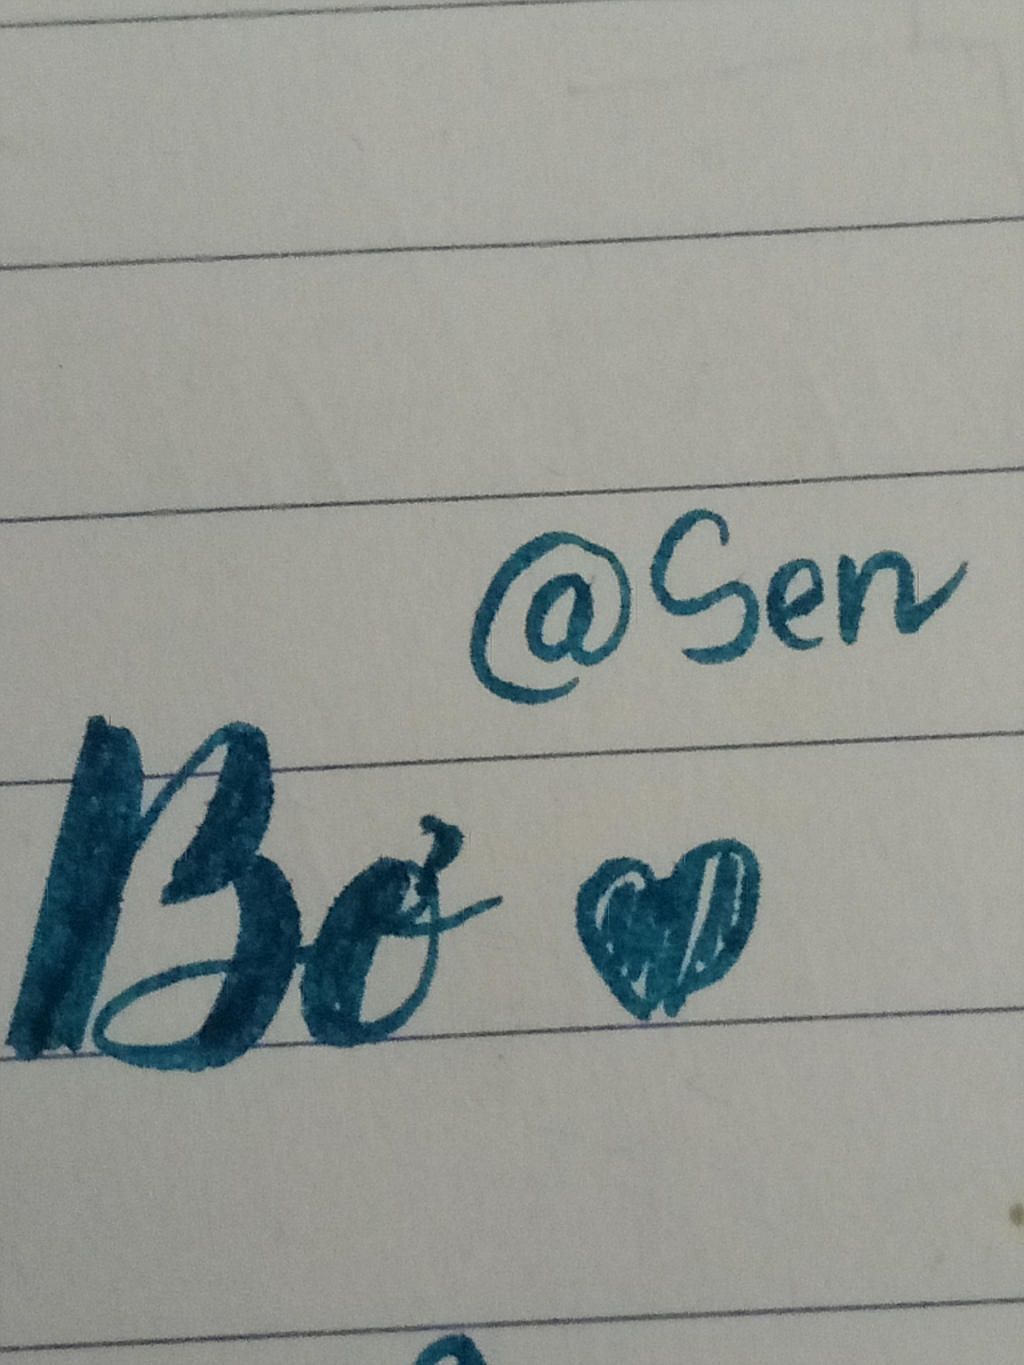 @Sen
Bơ